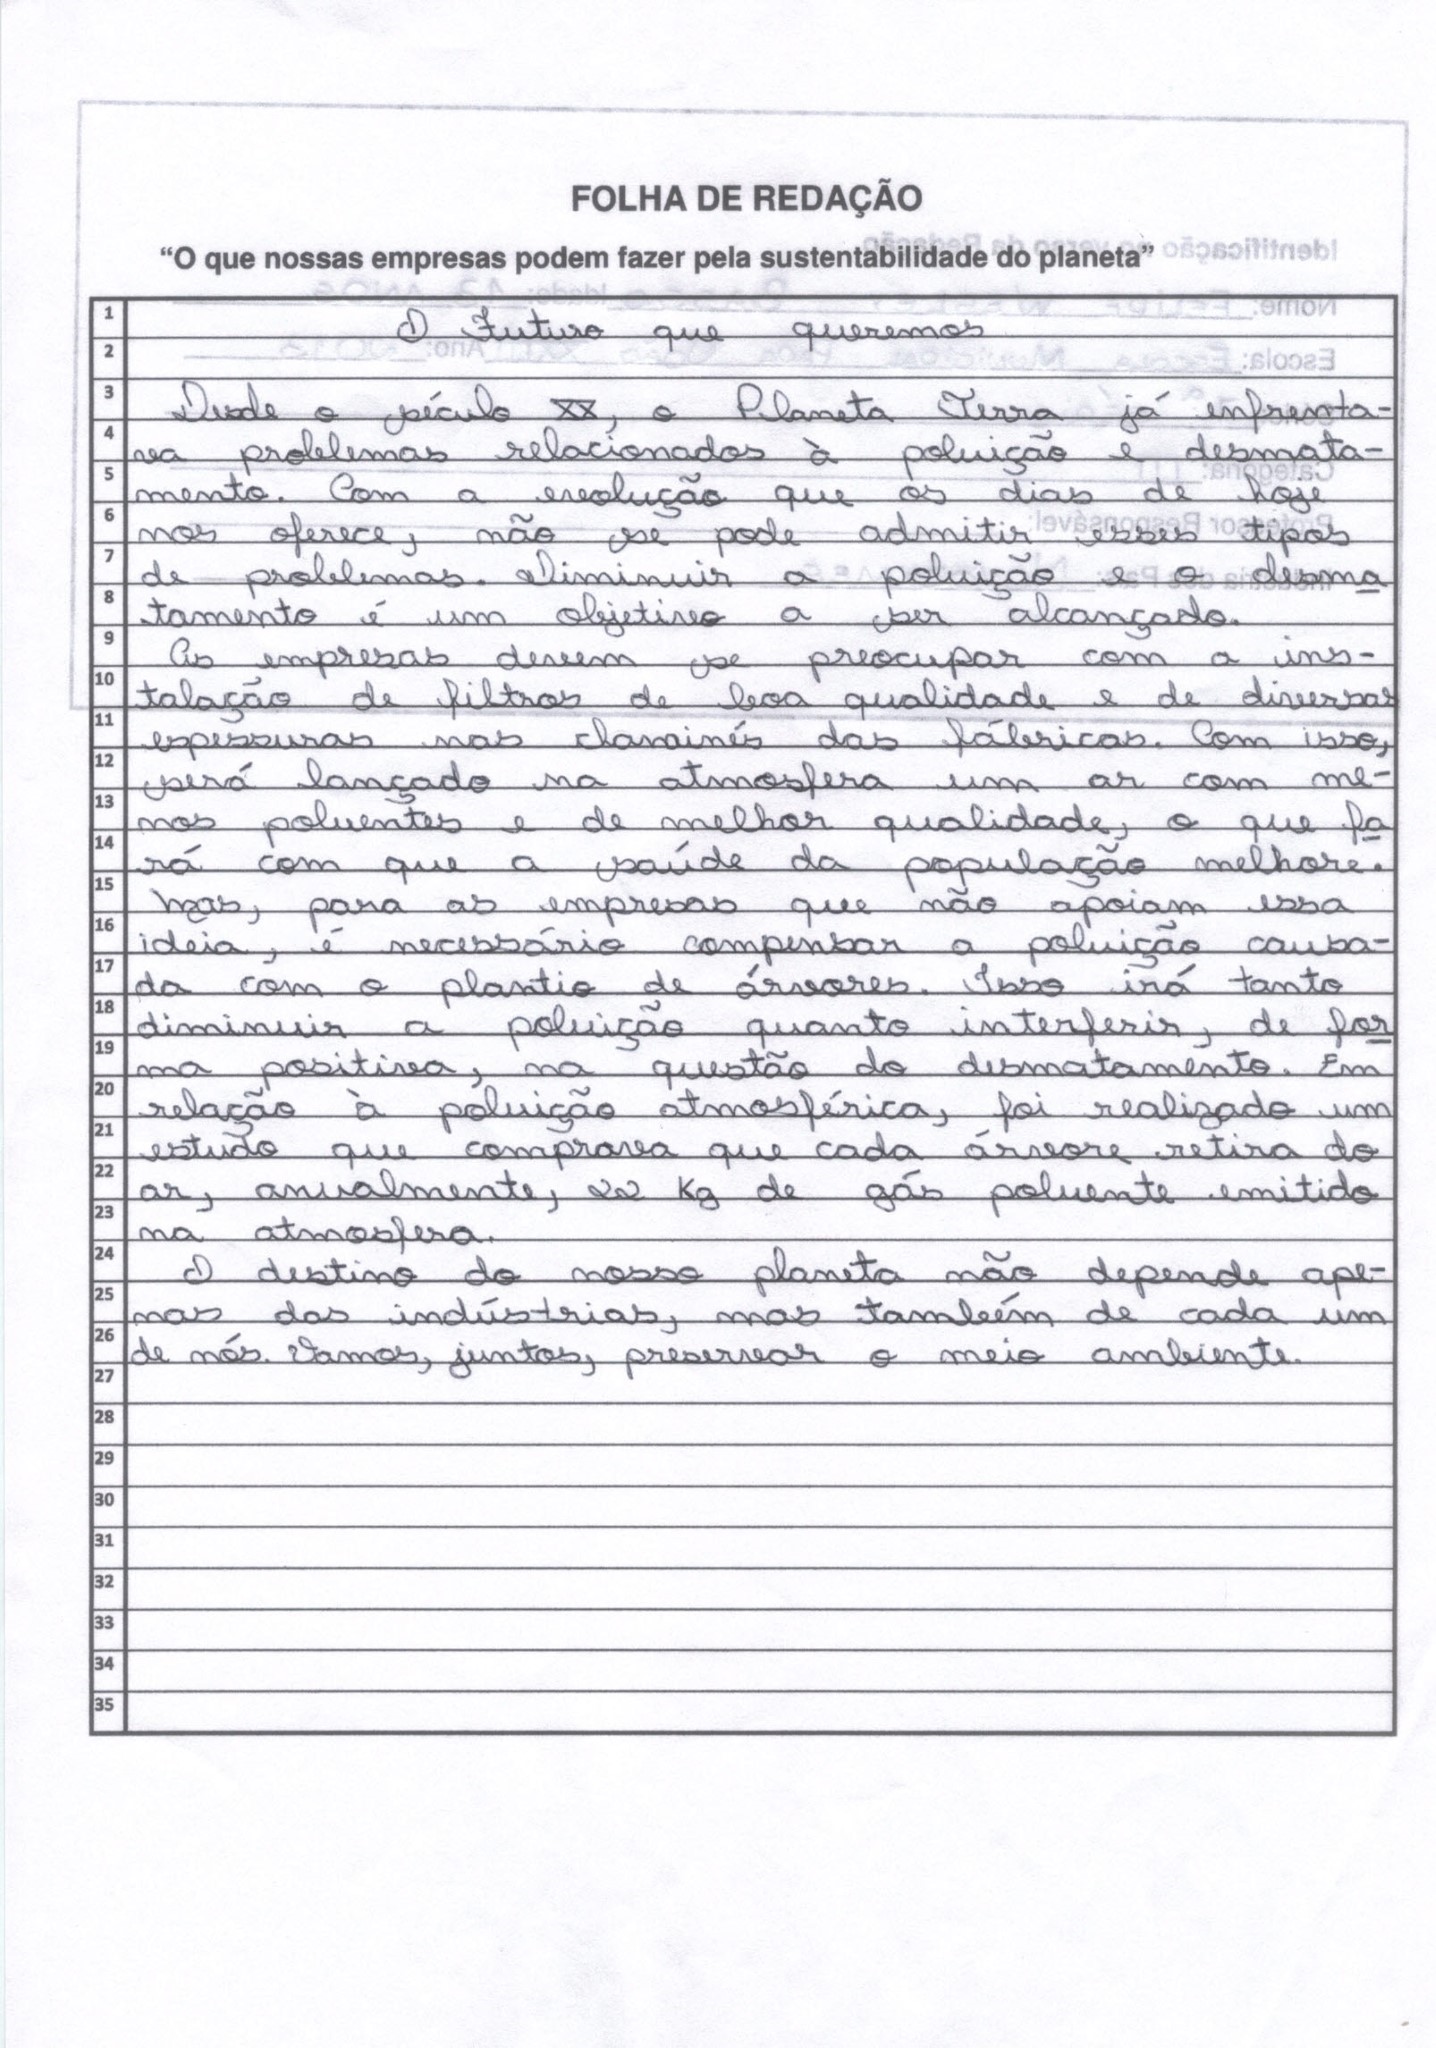 FOLHA DE REDAÇÃO
“O que nossas empresas podem fazer pela sustentabilidade do planeta”
1 O Futuro que queremos
2
3 Desde o século XX, o Planeta Terra já enfrenta-
4 va problemas relacionados à poluição e desmata-
5 mento. Com a evolução que os dias de hoje
6 nos oferece, não se pode admitir esses tipos
7 de problemas. Diminuir a poluição e o desma
8 tamento é um objetivo a ser alcançado.
9 As empresas devem se preocupar com a ins-
10 talação de filtros de boa qualidade e de diversas
11 espessuras nas chaminés das fábricas. Com isso,
12 será lançado na atmosfera um ar com me-
13 nos poluentes e de melhor qualidade, o que fa
14 rá com que a saúde da população melhore.
15 Mas, para as empresas que não apoiam essa
16 idéia, é necessário compensar a poluição causa-
17 da com o plantio de árvores. Isso irá tanto
18 diminuir a poluição quanto interferir, de for
19 ma positiva, na questão do desmatamento. Em
20 relação à poluição atmosférica, foi realizado um
21 estudo que comprova que cada árvore retira do
22 ar, anualmente, 22 Kg de gás poluente emitido
23 na atmosfera.
24 O destino do nosso planeta não depende ape-
25 nas das indústrias, mas também de cada um
26 de nós. Vamos, juntos, preservar o meio ambiente.
27
28
29
30
31
32
33
34
35